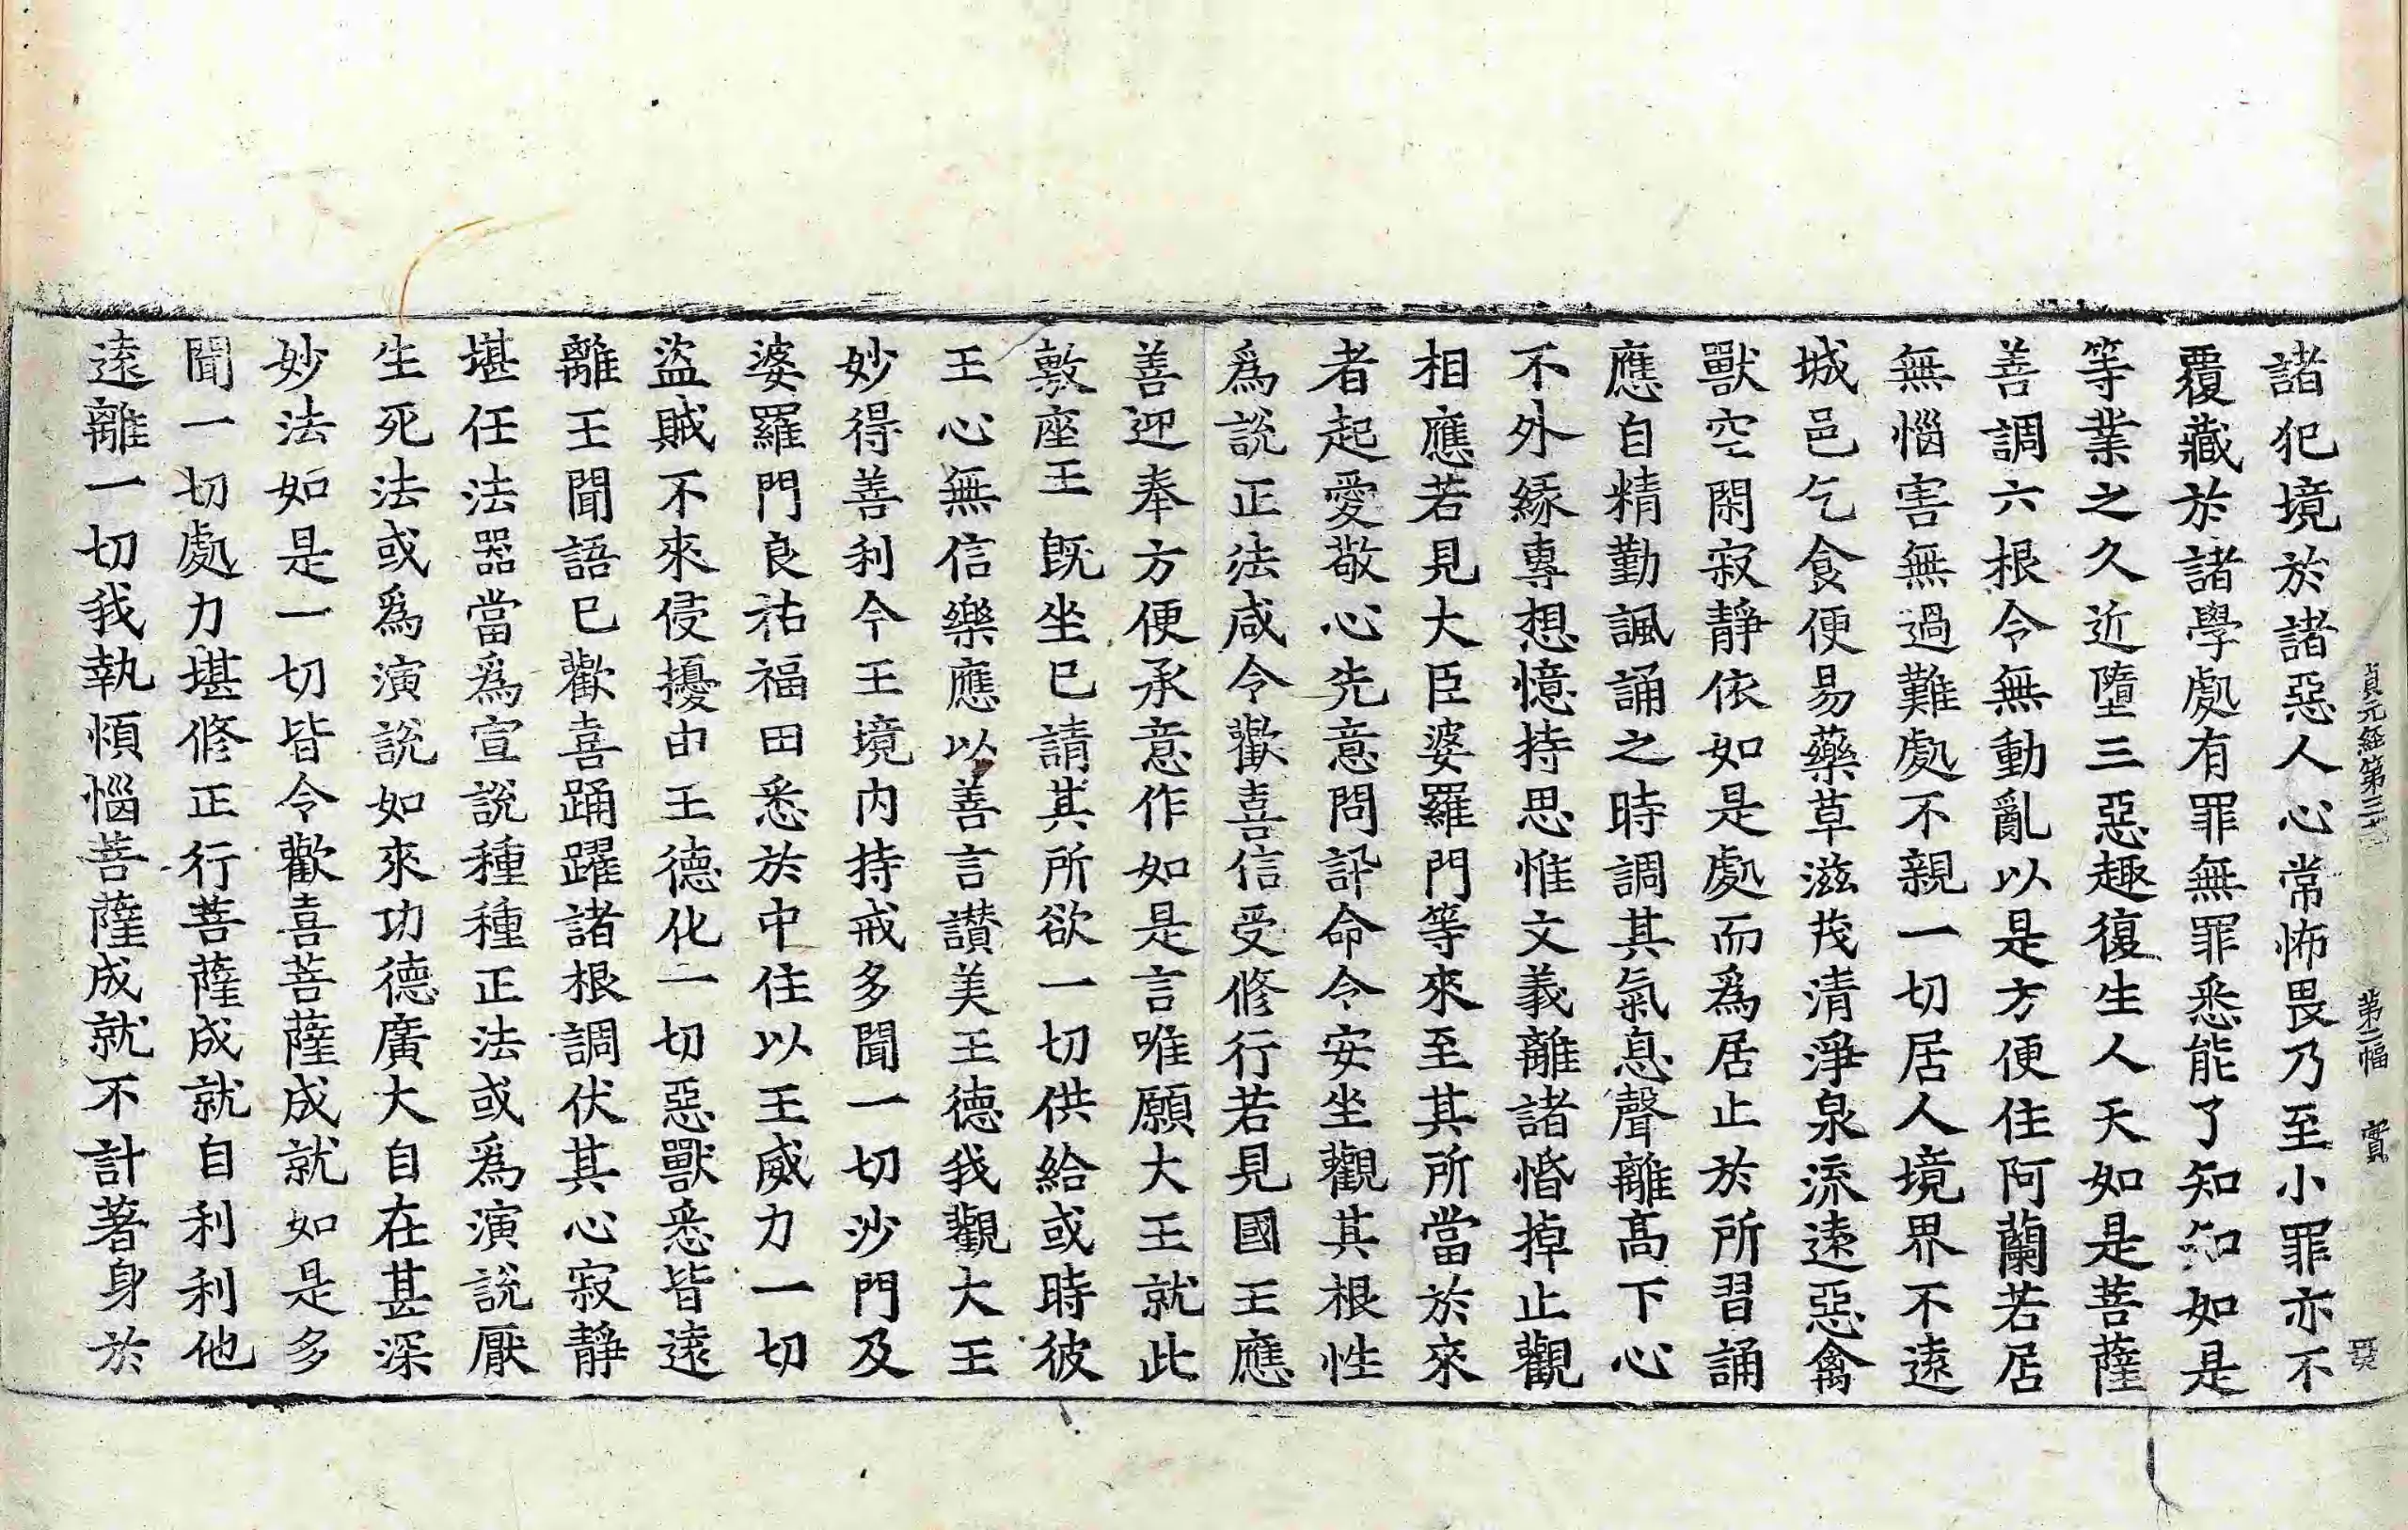 貞元經第三 第二幅 賞
諸犯境於諸惡人心常怖畏乃至小罪亦不
覆藏於諸學處有罪無罪悉能了知知如是
等業之久近墮三惡趣復生人天如是菩薩
善調六根令無動亂以是方便住阿蘭若居
無惱害無過難處不親一切居人境界不遠
城邑乞食便易藥草滋茂清淨泉流遠惡禽
獸空閑寂靜依如是處而爲居止於所習誦
應自精勤諷誦之時調其氣息聲離髙下心
不外緣專想憶持思惟文義離諸惛掉止觀
相應若見大臣婆羅門等來至其所當於來
者起愛敬心先意問訊命令安坐觀其根性
爲説正法咸令歡喜信受修行若見國王應
善迎奉方便承意作如是言唯願大王就此
敷座王旣坐已請其所欲一切供給或時彼
王心無信樂應以善言讃美王德我觀大王
妙得善利今王境内持戒多聞一切沙門及
婆羅門良祐福田悉於中住以王威力一切
盜賊不來侵擾由王德化一切惡獸悉皆遠
離王聞語已歡喜踊躍諸根調伏其心寂靜
堪任法器當爲宣説種種正法或爲演説厭
生死法或爲演説如來功德廣大自在甚深
妙法如是一切皆令歡喜菩薩成就如是多
聞一切處力堪修正行菩薩成就自利利他
遠離一切我執煩惱菩薩成就不計著身於